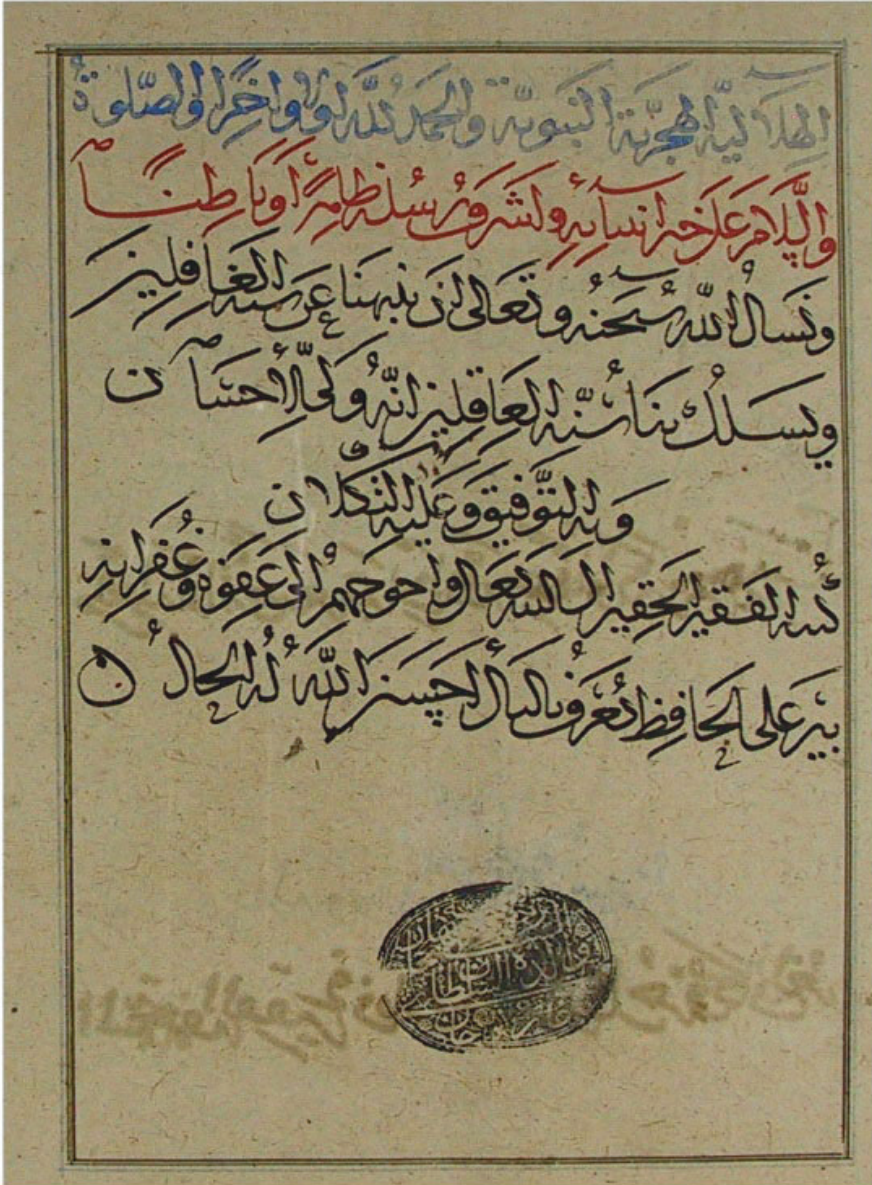 الهلالية الهجرية النبوية والحمد لله اولا واخرا والصلوة
والسلام على خير انبيائه واشرف رسله ظاهرا وباطنا
ونسأل الله سبحنه وتعالى ان ينبهنا عن سنة الغافلين
ويسلك بنا سنة العاقلين انه ولي الاحسان
وبه التوفيق وعليه التكلان
كتبه الفقير الحقير الى الله تعالى واحوجهم الى عفوه وغفرانه
بير على الحافظ يعرف احسن الله له الحال